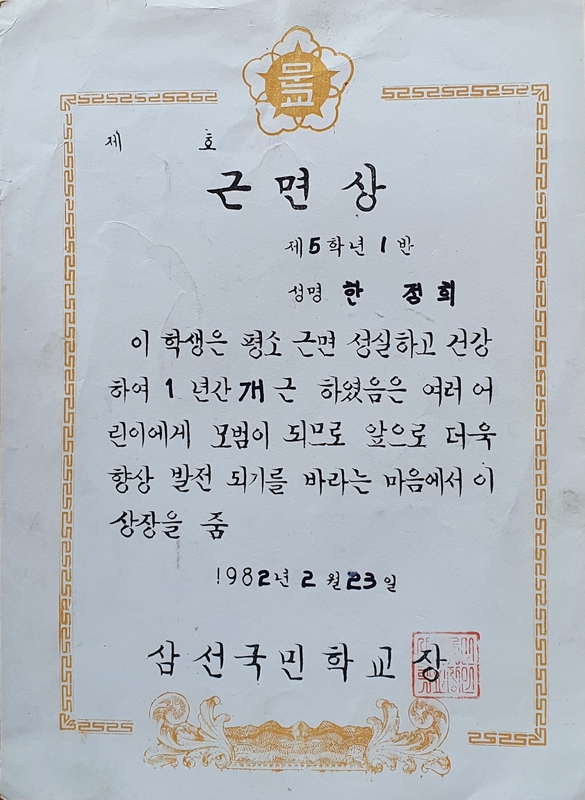 문교
제 호
근면상
제5학년 1반
성명 한 정희
이 학생은 평소 근면 성실하고 건강
하여 1 년간 개근 하였음은 여러 어
린이에게 모범이 되므로 앞으로 더욱
향상 발전 되기를 바라는 마음에서 이
상장을 줌
1982년 2월 23일
삼선국민학교장